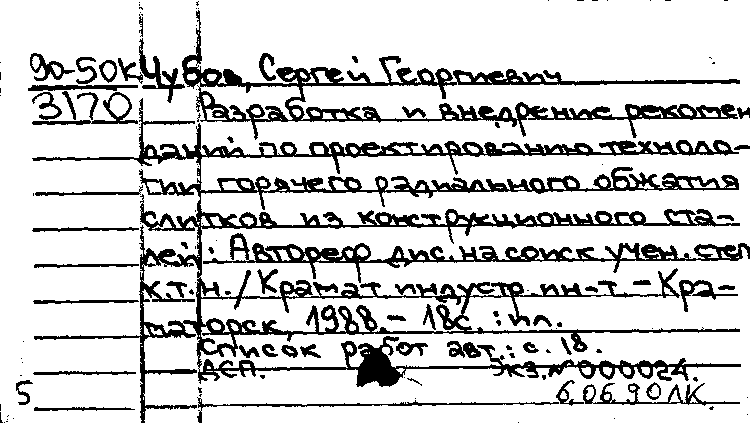 90-50К Чубов, Сергей Георгиевич
3170 Разработка и внедрение рекомен
даний по проектированию техноло-
гии горячего радиального обжатия
слитков из конструкционного ста-
лей: Автореф дис. на соиск учен. степ
к.т.н. / Крамат. индустр. ин-т. - Кра-
маторск, 1988. - 18с. : ил.
Список работ авт.: с. 18.
ДСП. Экз. № 000024.
5 6.06.90 ЛК.